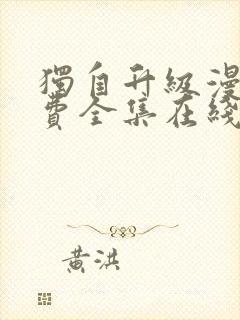 獨自升級漫
費全集在綫
黃洪